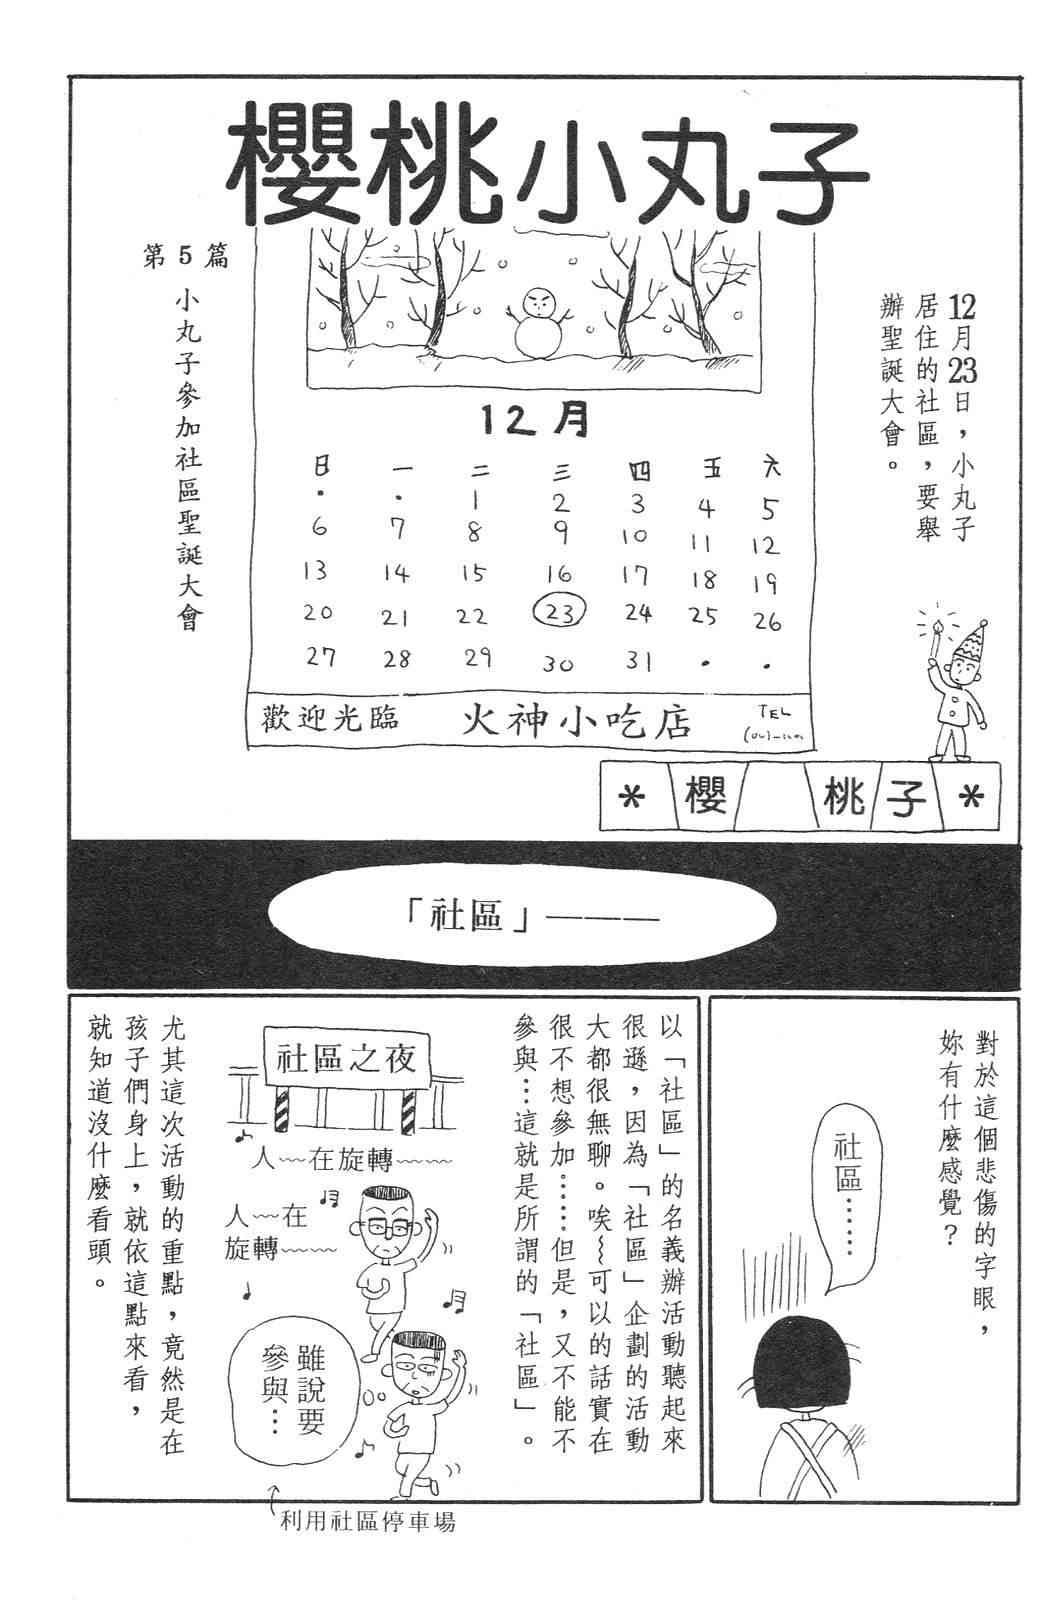 櫻桃小丸子
12月23日，小丸子
居住的社區，要舉
辦聖誕大會。
第5篇
小丸子參加社區聖誕大會
12月
日 一 二 三 四 五 六
・ ・ 1 2 3 4 5
6 7 8 9 10 11 12
13 14 15 16 17 18 19
20 21 22 23 24 25 26
27 28 29 30 31 ・ ・
歡迎光臨 火神小吃店 TEL
＊櫻 桃子＊
「社區」———
對於這個悲傷的字眼，
妳有什麼感覺？
社區……
以「社區」的名義辦活動聽起來
很遜，因為「社區」企劃的活動
大都很無聊。唉～可以的話實在
很不想參加……但是，又不能不
參與…這就是所謂的「社區」。
社區之夜
人～在旋轉～～
人～在
旋轉～～
雖說要
參與…
利用社區停車場
尤其這次活動的重點，竟然是在
孩子們身上，就依這點來看，
就知道沒什麼看頭。